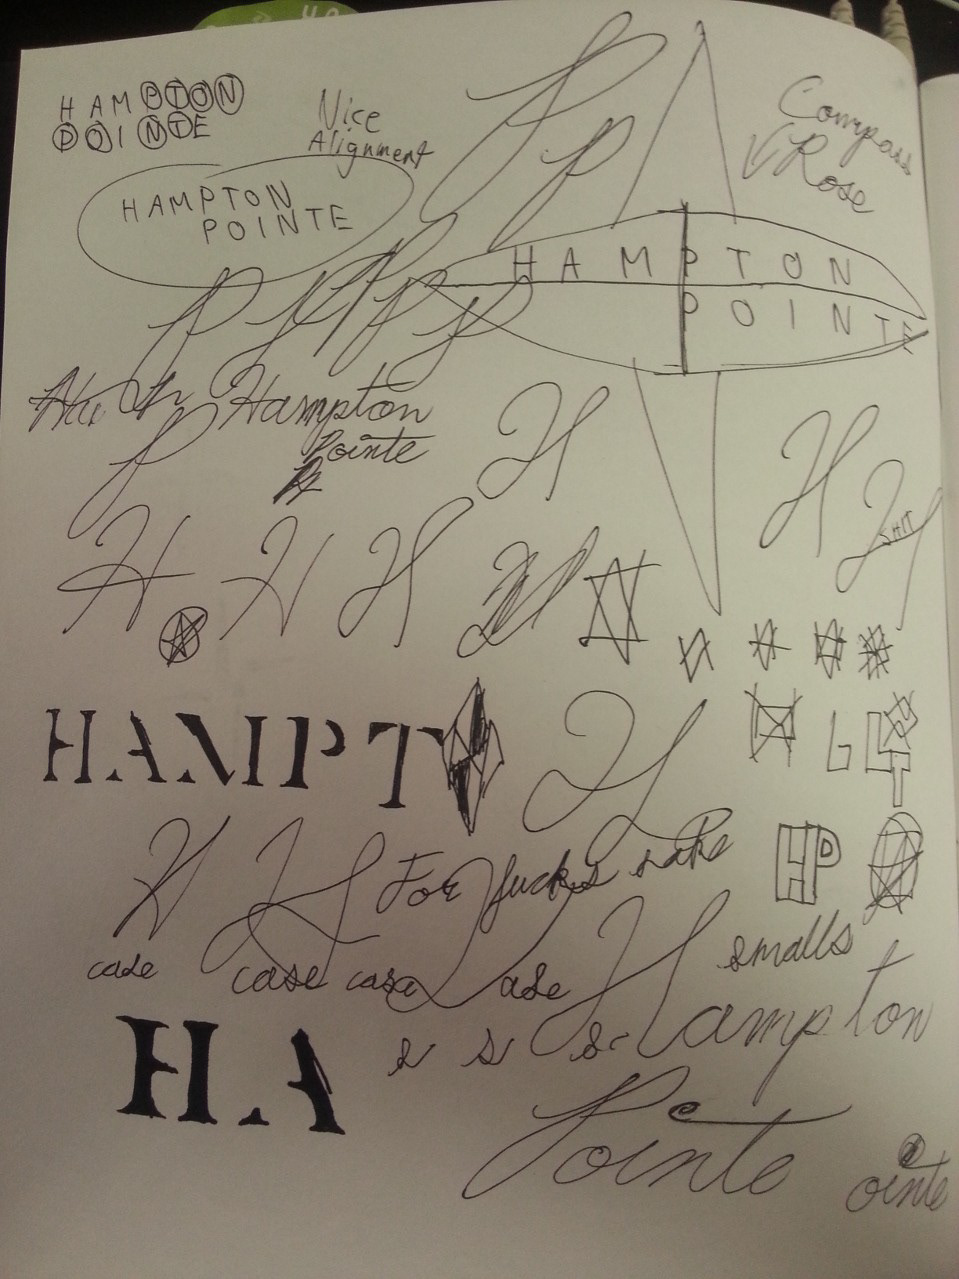 HAMPTON
POINTE
Nice
Alignment
Compass
Rose
HAMPTON
POINTE
P
P
HAMPTON
POINTE
P P P P P P
Hampton
Pointe
P
H
H
H
SHIT
H H H
HAMPT
H
L
H H
For fucks sake
HP
case case case ase
smalls
HA
s s s
Hampton
Pointe
ointe